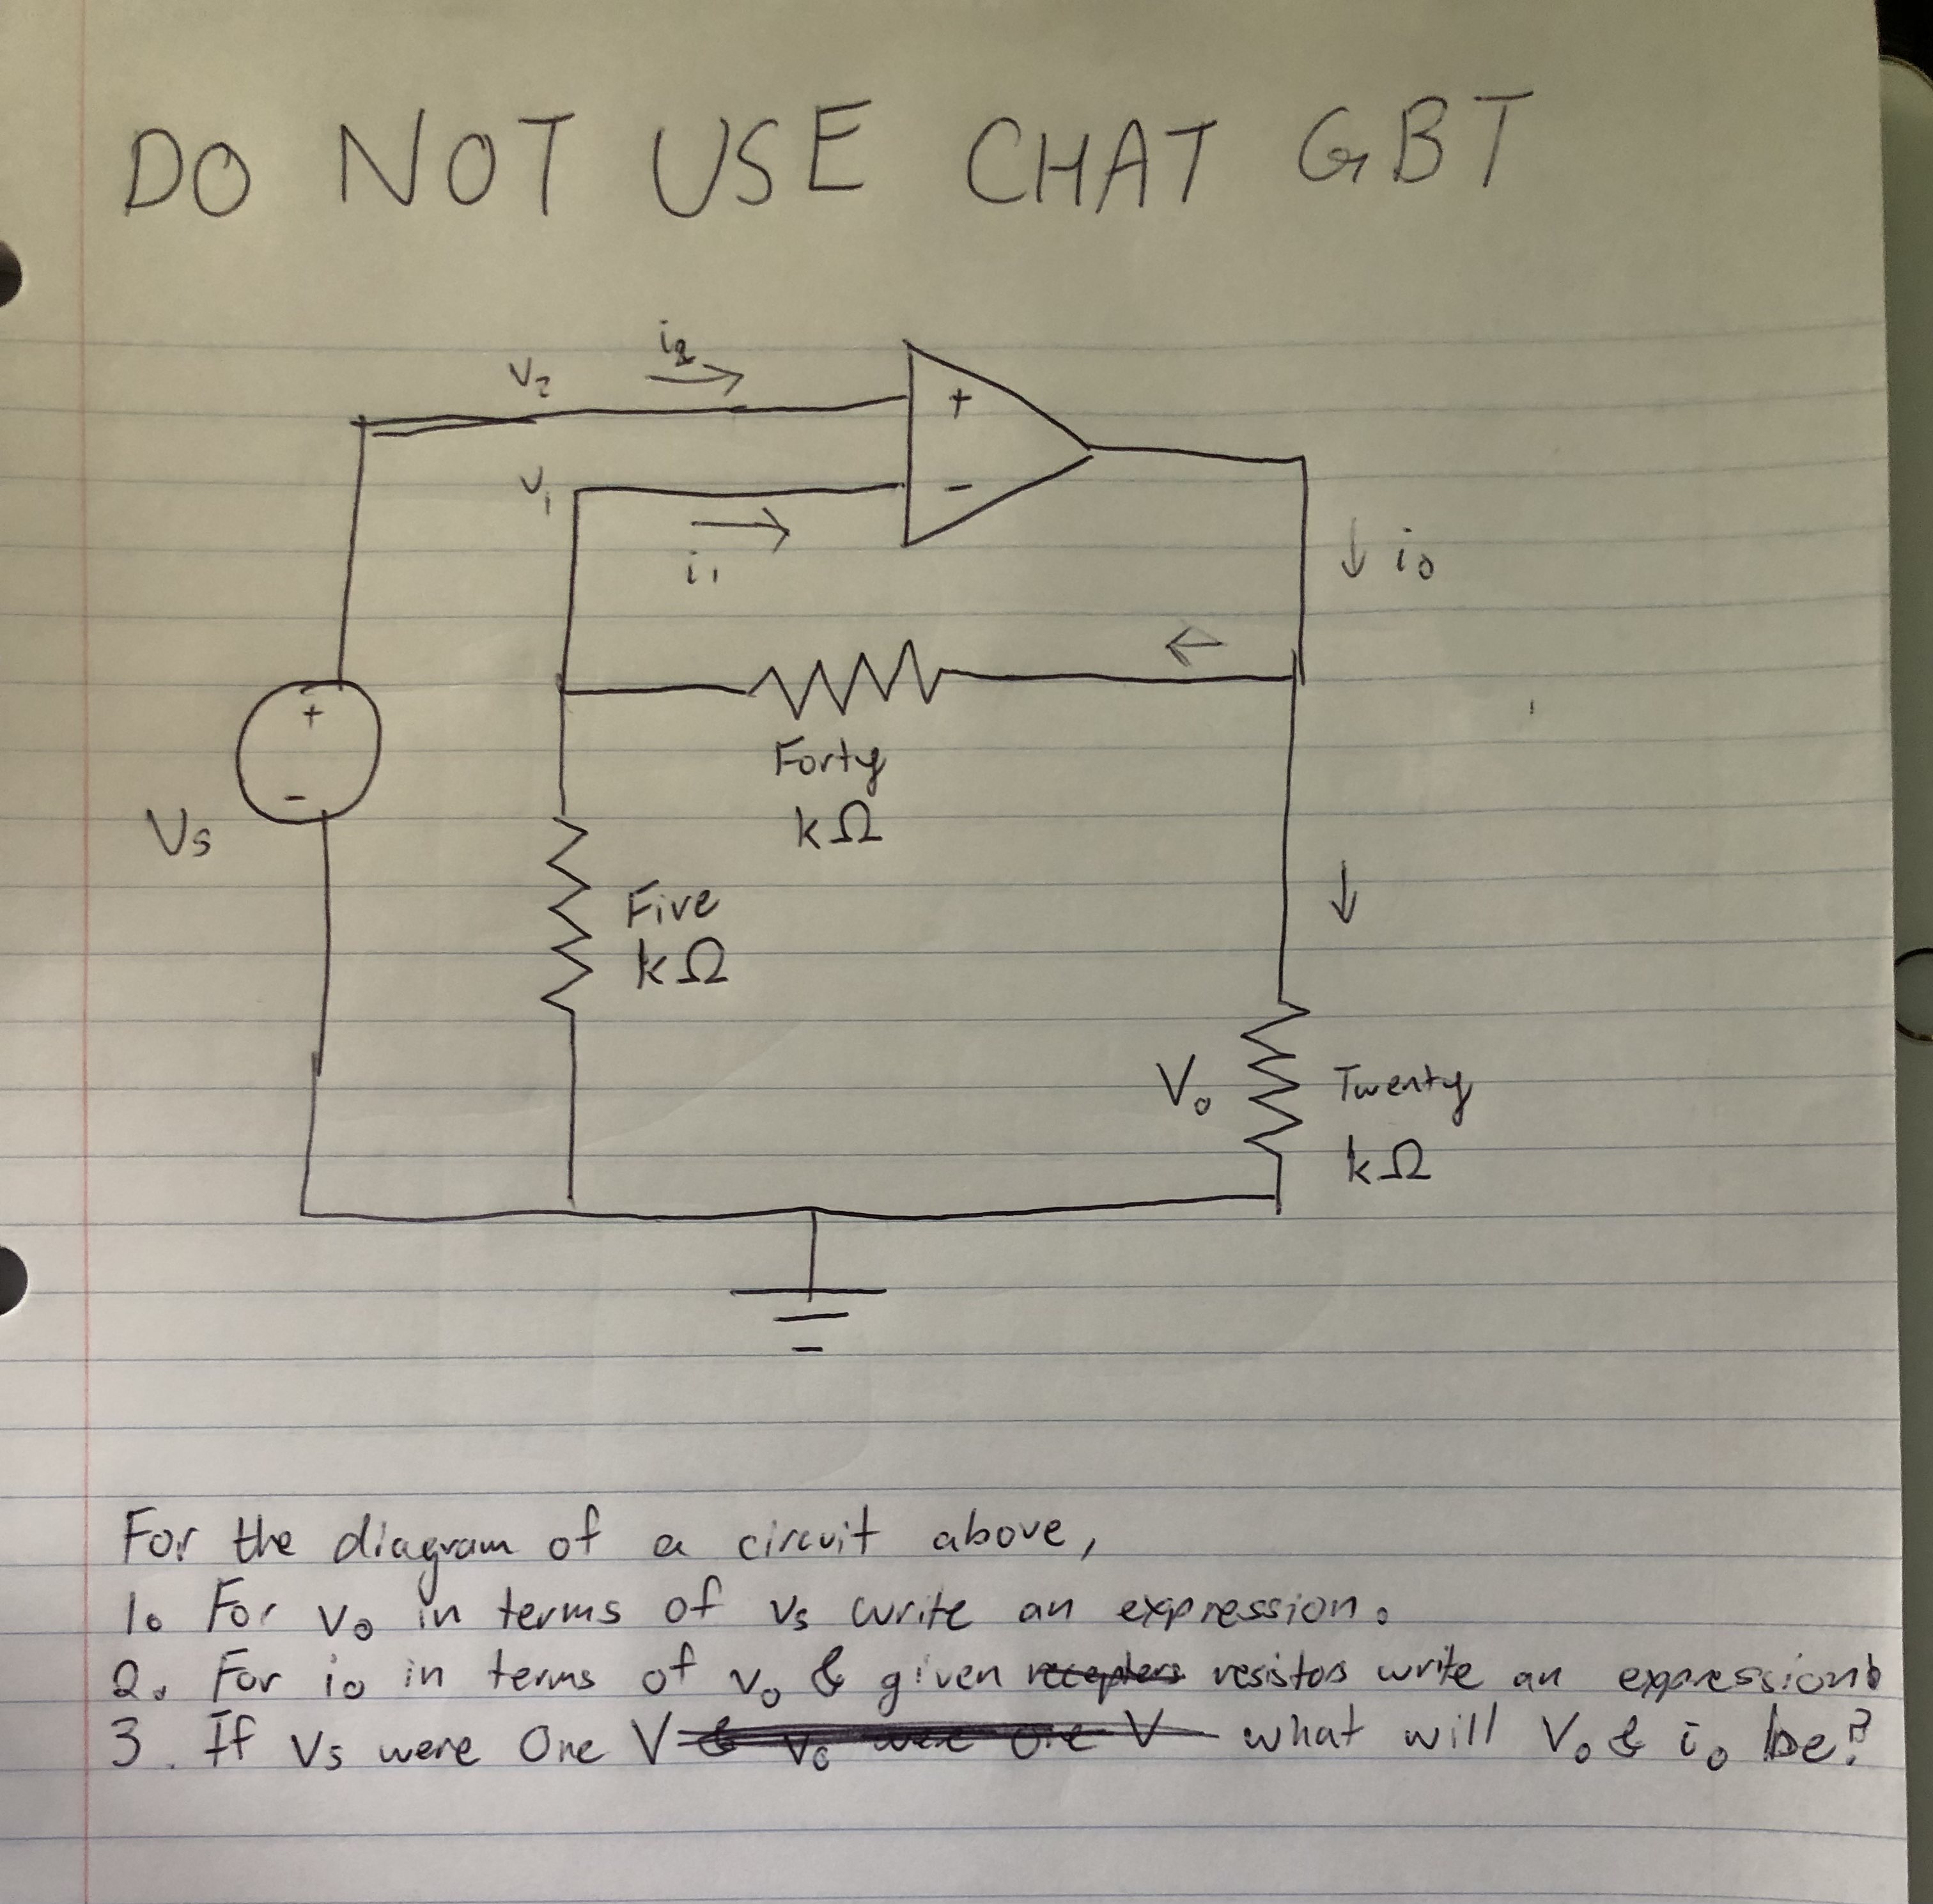 DO NOT USE CHAT GBT
V2
i2
+
V1
-
i1
io
+
-
Vs
Forty
kΩ
Five
kΩ
Vo
Twenty
kΩ
For the diagram of a circuit above,
1. For vo in terms of vs write an expression.
2. For io in terms of vo & given resistors write an expression.
3. If Vs were One V what will Vo & io be?